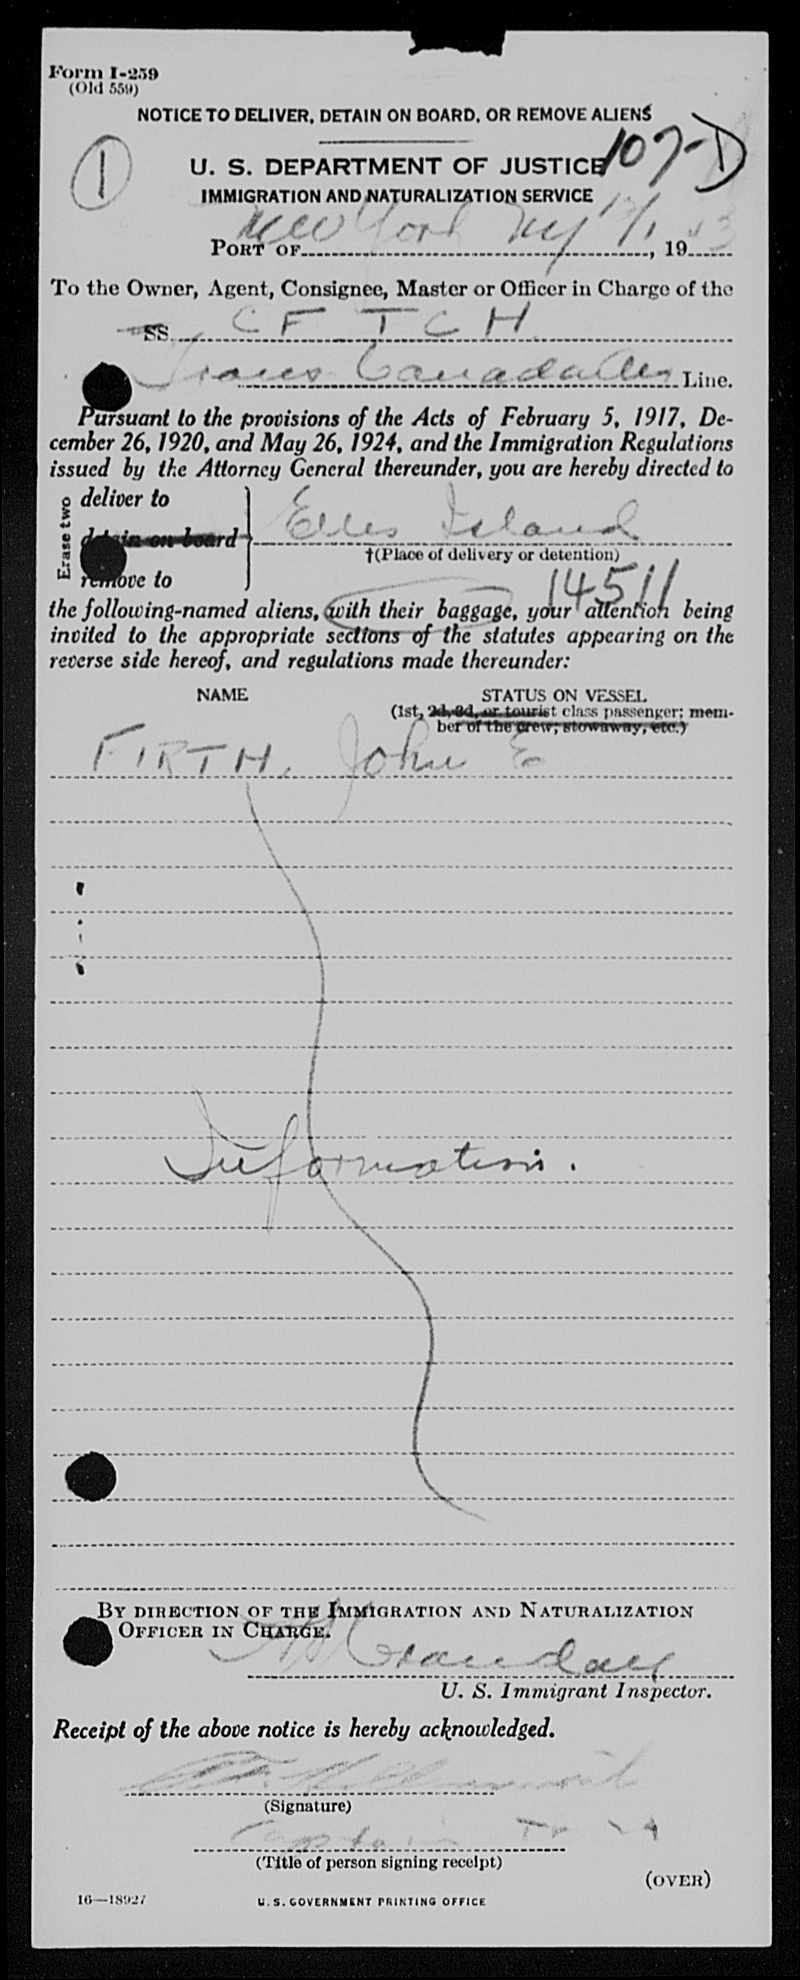 Form I-259
(Old 559)
NOTICE TO DELIVER, DETAIN ON BOARD, OR REMOVE ALIENS
1
107-D
U. S. DEPARTMENT OF JUSTICE
IMMIGRATION AND NATURALIZATION SERVICE
PORT OF New York NY, 19
To the Owner, Agent, Consignee, Master or Officer in Charge of the
SS. CF TCH
Trans Canada Line.
Pursuant to the provisions of the Acts of February 5, 1917, De-
cember 26, 1920, and May 26, 1924, and the Immigration Regulations
issued by the Attorney General thereunder, you are hereby directed to
Erase two
deliver to
detain on board
remove to
Ellis Island
†(Place of delivery or detention)
14511
the following-named aliens, with their baggage, your attention being
invited to the appropriate sections of the statutes appearing on the
reverse side hereof, and regulations made thereunder:
NAME STATUS ON VESSEL
(1st, 2d, 3d, or tourist class passenger; mem-
ber of the crew; stowaway, etc.)
FIRTH, John E
Information.
BY DIRECTION OF THE IMMIGRATION AND NATURALIZATION
OFFICER IN CHARGE.
Crandall
U. S. Immigrant Inspector.
Receipt of the above notice is hereby acknowledged.
(Signature)
Captain
(Title of person signing receipt)
(OVER)
16—18927 U. S. GOVERNMENT PRINTING OFFICE